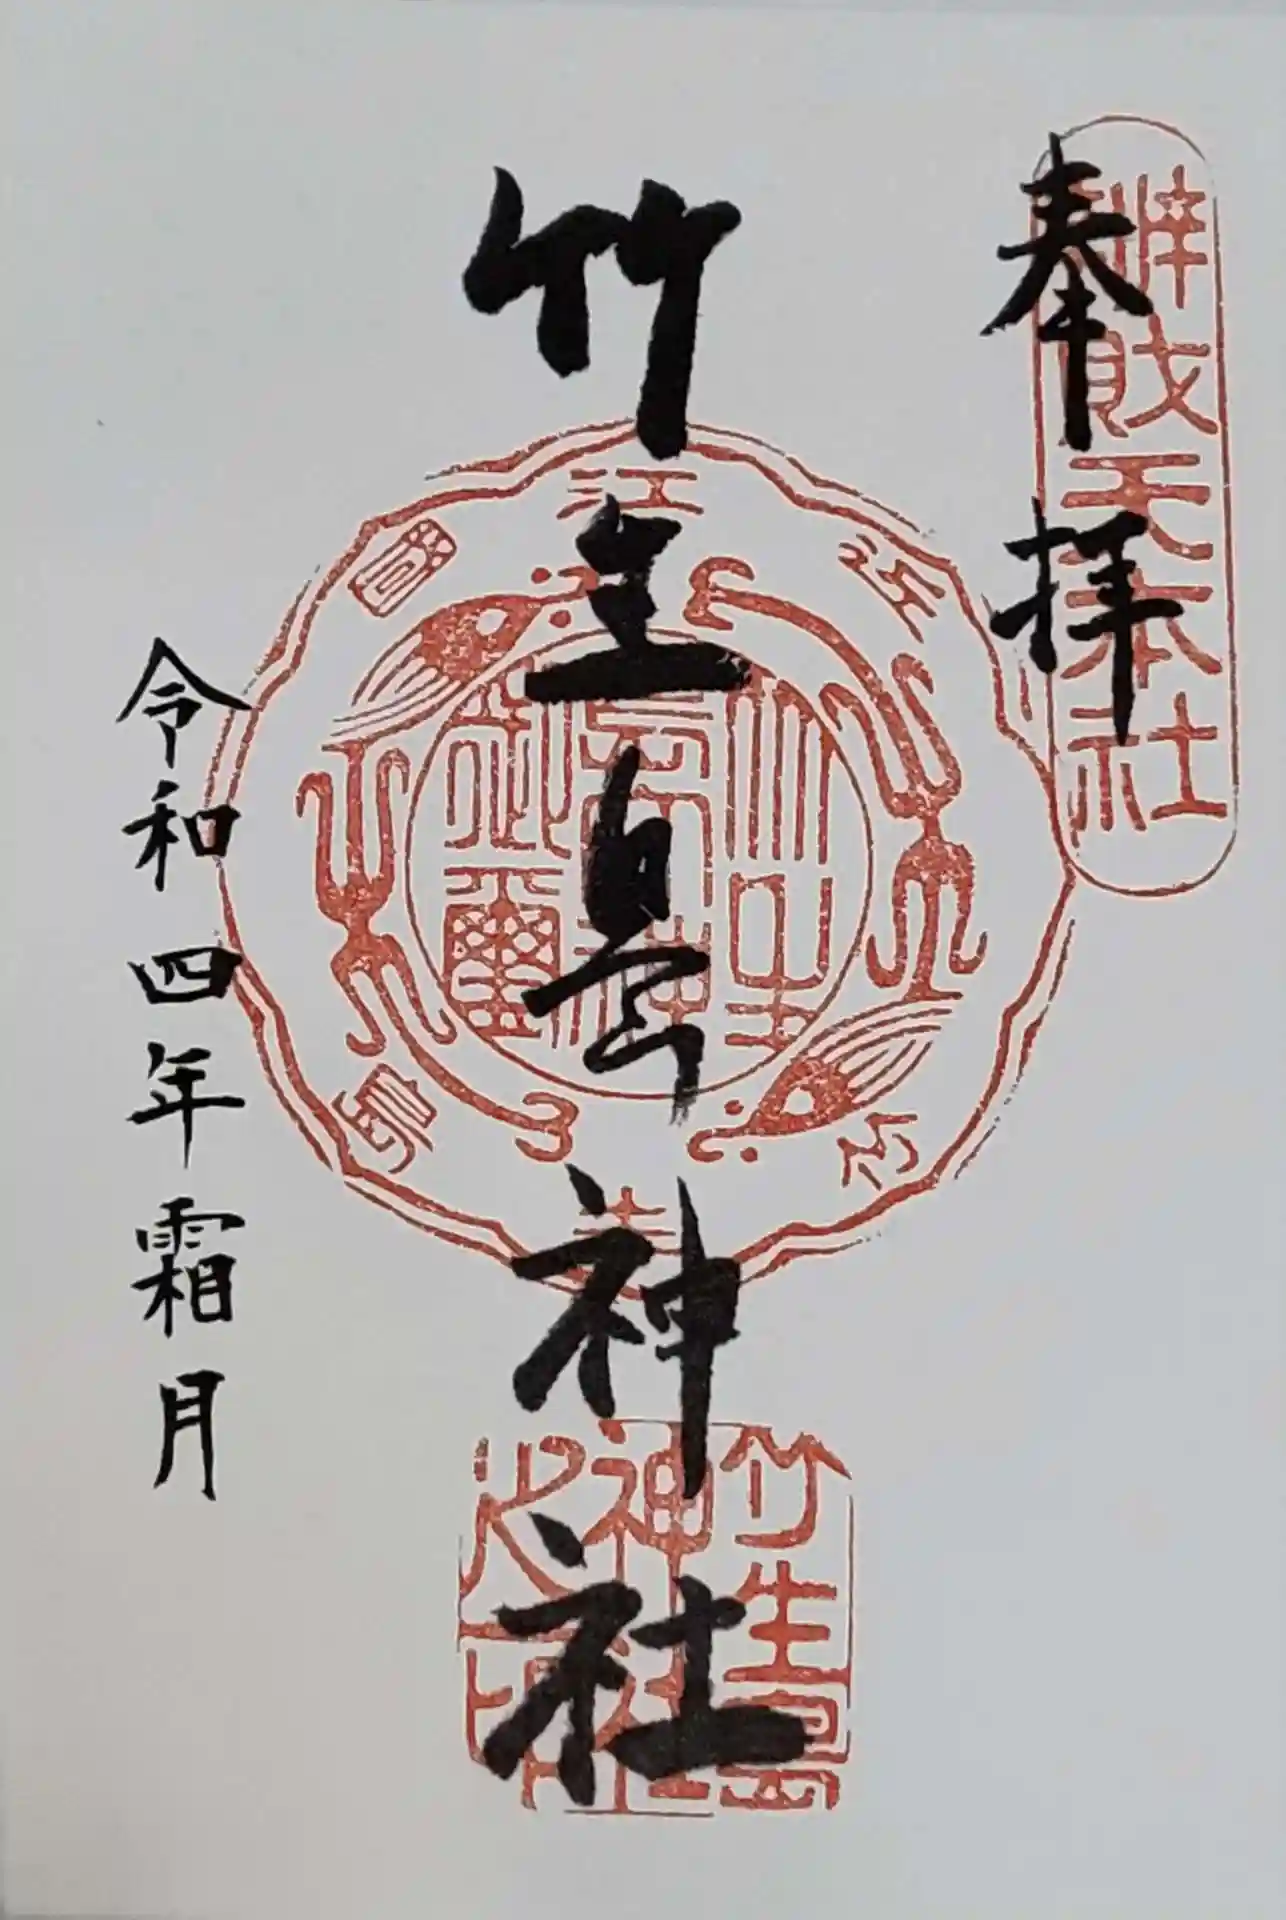 奉拝
辨財天本社
竹生島神社
江
竹生島神社之印
令和四年霜月